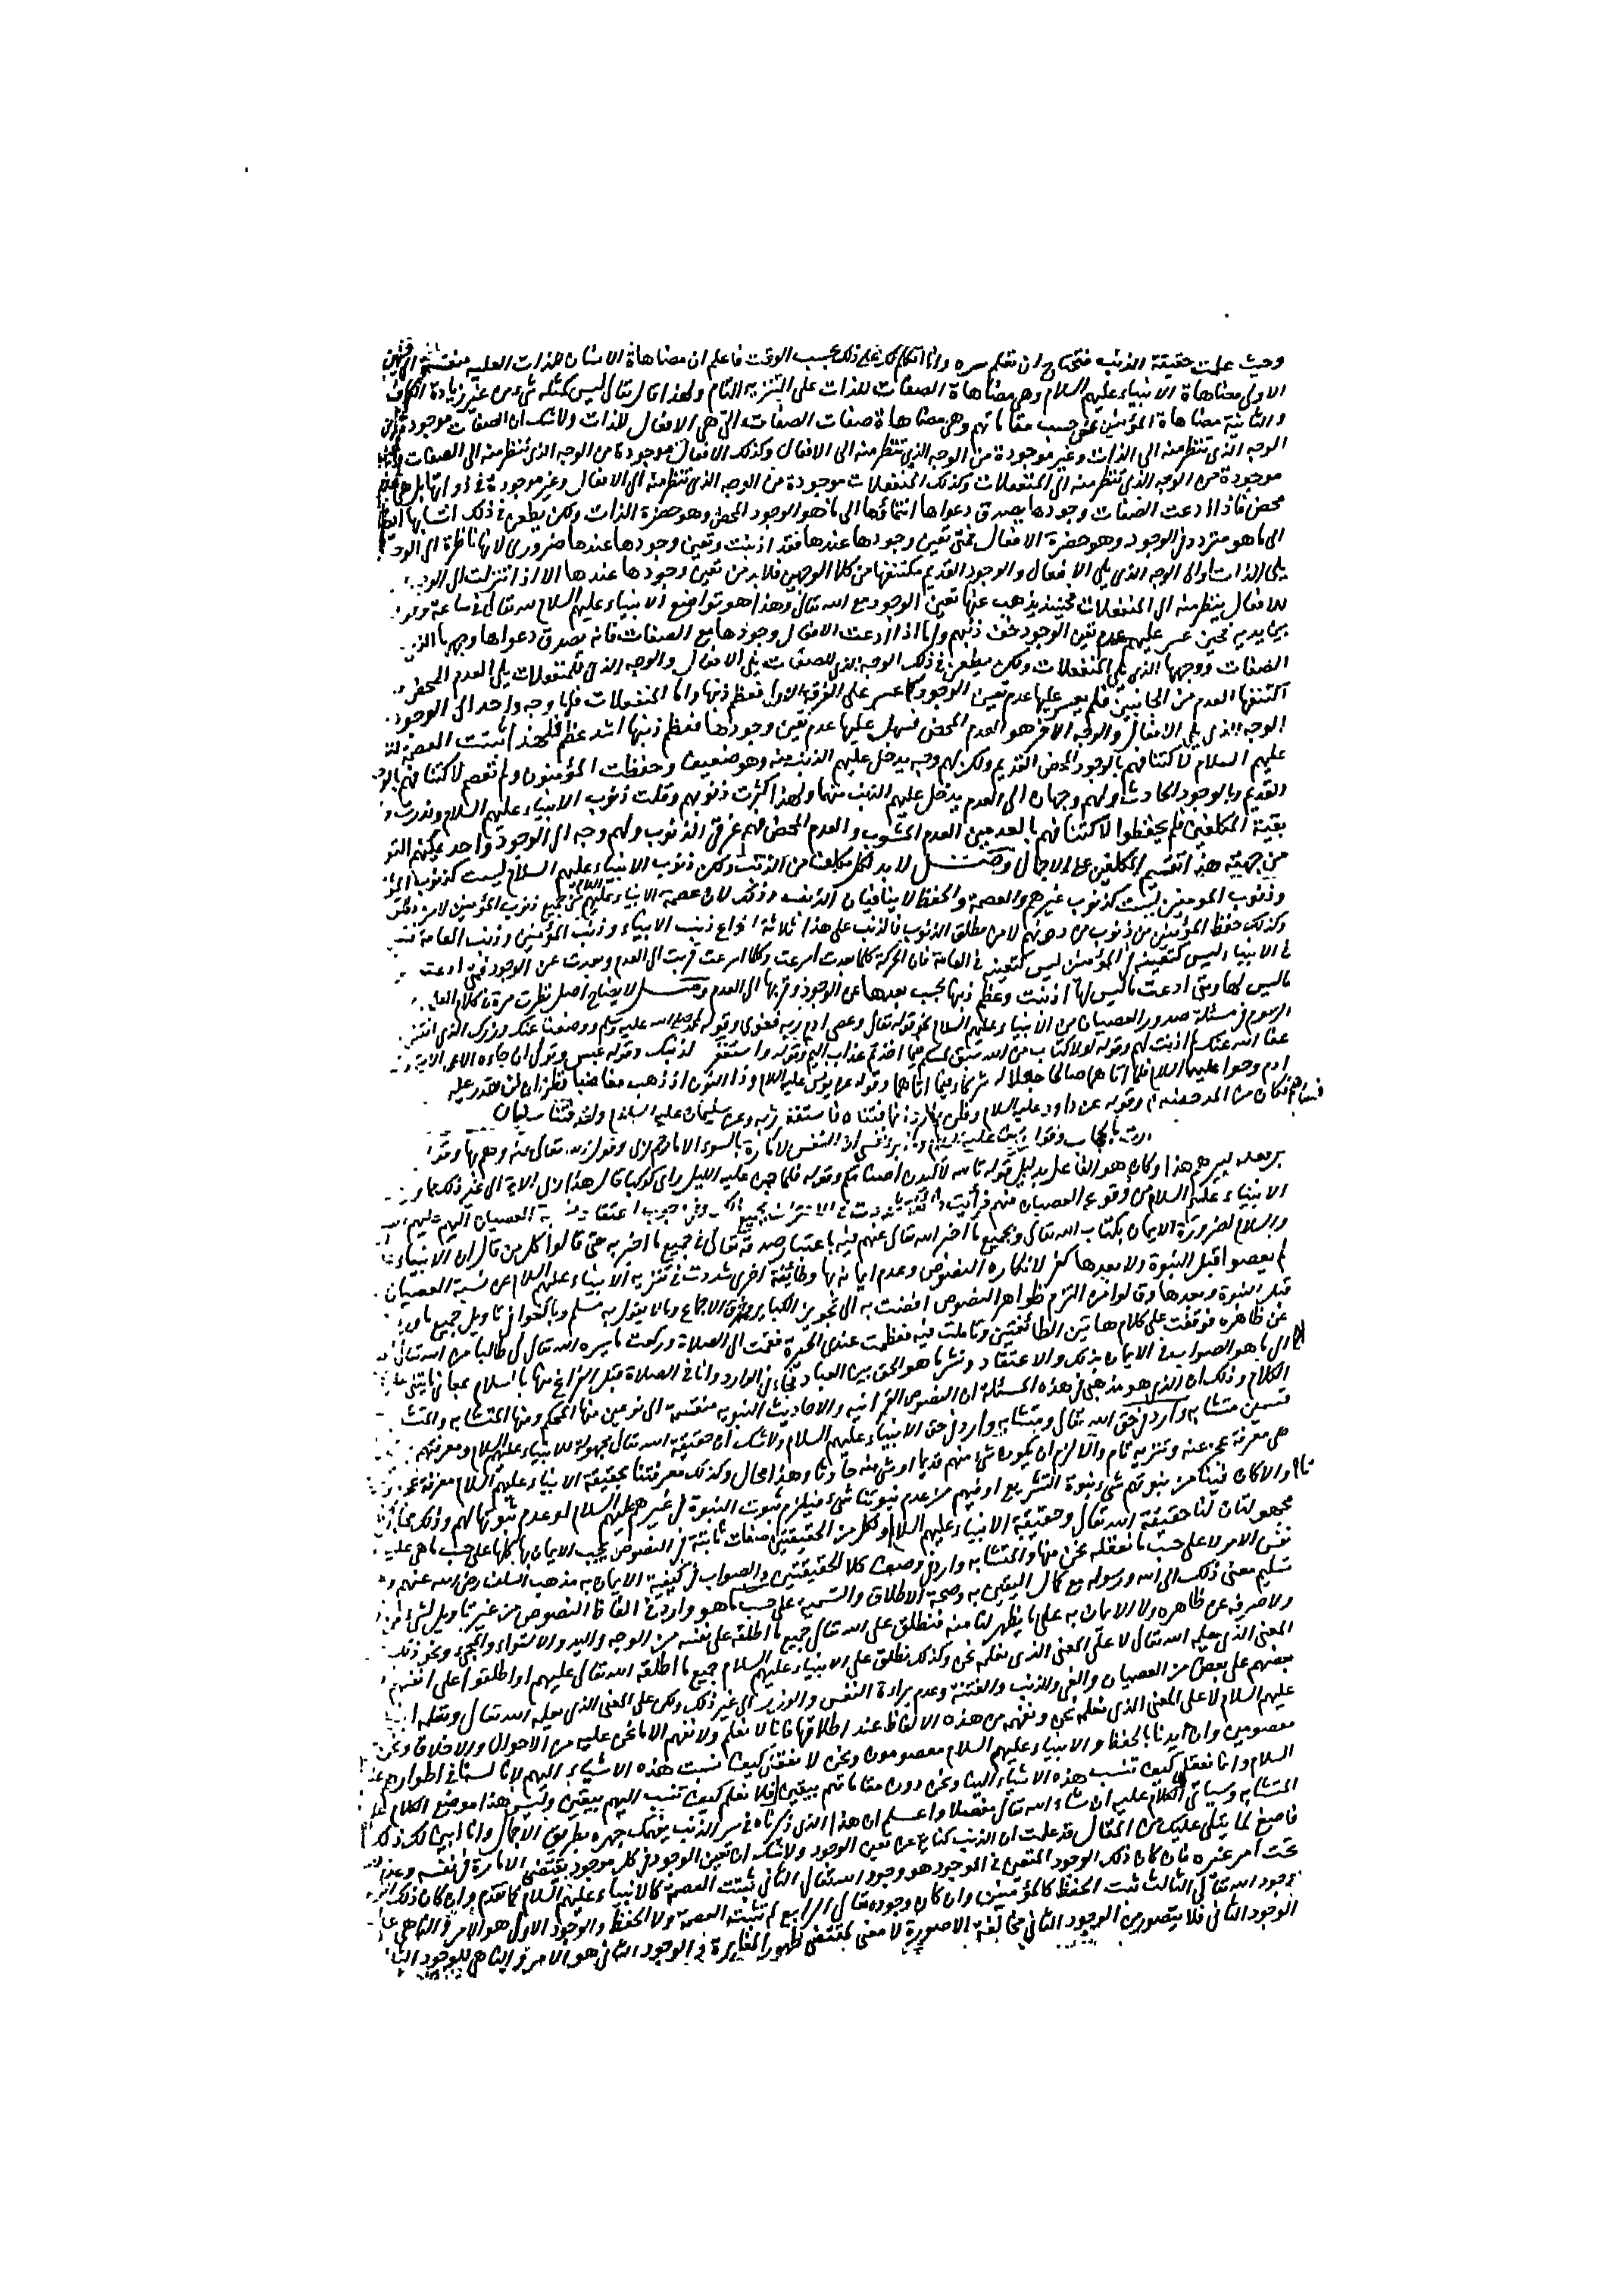 وحيث علمت حقيقة الذنب فتحتاج ان تعلم سره وانا اتكلم لك على ذلك بحسب الوقت فاعلم ان مضاهاة الانسان للذات العلية منقسمة الى قسمين
الاولى مضاهاة الانبياء عليهم السلام وهي مضاهاة الصفات للذات على التنزيه التام ولهذا قال تعالى ليس كمثله شيء من غير زيادة الكاف
والثانية مضاهاة المؤمنين على حسب مقاماتهم وهي مضاهاة صفات الصفات التي هي الافعال للذات ولا شك ان الصفات موجودة من
الوجه الذي تنظر منه الى الذات وغير موجودة من الوجه الذي تنظر منه الى الافعال وكذلك الافعال موجودة من الوجه الذي تنظر منه الى الصفات وغير
موجودة من الوجه الذي تنظر منه الى المنفعلات وكذلك المنفعلات موجودة من الوجه الذي تنظر منه الى الافعال وغير موجودة في ذواتها بل هي عدم
محض فاذا ادعت الصفات وجودها يصدق دعواها انتماؤها الى ما هو الوجود المحض وهو حضرة الذات ولكن يطعن في ذلك انتسابها ايضا
الى ما هو متردد في الوجود وهو حضرة الافعال فمتى تعين وجودها عندها فقد اذنبت وتعين وجودها عندها ضروري لانها ناظرة الى الوجه
يلي الذات والى الوجه الذي يلي الافعال والوجود القديم مكتنفها من كلا الوجهين فلا بد من تعين وجودها عندها الا اذا تنزلت الى الوجه
للافعال ينظر منه الى المنفعلات فحينئذ يذهب عنها تعين الوجود مع الله تعالى وهذا هو تواضع الانبياء عليهم السلام لله تعالى في ساعة
بين يديه فحين عسر عليهم عدم تعين الوجود خف ذنبهم واما اذا ادعت الافعال وجودها مع الصفات فانه يصدق دعواها وجهها الذي
الصفات ووجهها الذي يلي المنفعلات ولكن يطعن في ذلك الوجه الذي للصفات يلي الافعال والوجه الذي للمنفعلات يلي العدم المحض
اكتنفها العدم من الجانبين فلم يعسر عليها عدم تعين الوجود كما عسر على الفرقة الاولى فعظم ذنبها واما المنفعلات فلها وجه واحد الى الوجود
الوجه الذي يلي الافعال والوجه الاخر هو العدم المحض فسهل عليها عدم تعين وجودها فعظم ذنبها اشد عظم فلهذا ثبتت العصمة
عليهم السلام لاكتنافهم بالوجود المحض القديم ولكن لهم وجه يدخل عليهم الذنب منه وهو ضعيف وحفظت المؤمنون ولم تعصم لاكتنافهم
القديم وبالوجود الحادث ولهم وجهان الى العدم يدخل عليهم الذنب منهما ولهذا كثرت ذنوبهم وقلت ذنوب الانبياء عليهم السلام وندرت
بقية المكلفين فلم يحفظوا لاكتنافهم بالعدمين العدم المشوب والعدم المحض فهم غرقى الذنوب ولهم وجه الى الوجود واحد يمكنهم
من جهته هذا تقسيم المكلفين على الاجمال وصل لا بد لكل مكلف من الذنب ولكن ذنوب الانبياء عليهم السلام ليست كذنوب
وذنوب المومنين ليست كذنوب غيرهم والعصمة والحفظ لا ينافيان الذنب وذلك لان عصمة الانبياء عليهم السلام من جميع ذنوب المؤمنين لا من ذنوبهم
وكذلك حفظ المؤمنين من ذنوب من دونهم لا من مطلق الذنوب فالذنب على هذا ثلاثة انواع ذنب الانبياء وذنب المؤمنين وذنب العامة
في الانبياء ليس كتعينه في المؤمنين ليس كتعينه في العامة فان الحركة كلما بعدت اسرعت وكلما اسرعت قربت الى العدم وبعدت عن الوجود فمتى ادعت
ما ليس لها ومتى ادعت ما ليس لها اذنبت وعظم ذنبها بحسب بعدها عن الوجود وقربها الى العدم وصل لايضاح اصل نظرت مرة في كلام العلماء
الرسوم في مسئلة صدور العصيان من الانبياء عليهم السلام نحو قوله تعالى وعصى ادم ربه فغوى وقوله لمحمد صلى الله عليه وسلم ووضعنا عنك وزرك الذي انقض
عفا الله عنك لم اذنت لهم وقوله لولا كتاب من الله سبق لمسكم فيما اخذتم عذاب اليم وقوله واستغفر لذنبك وقوله عبس وتولى ان جاءه الاعمى الاية
ادم وحوا عليهما السلام فلما اتاهما صالحا جعلا له شركاء فيما اتاهما وقوله عن يونس عليه السلام وذا النون اذ ذهب مغاضبا فظن ان لن نقدر عليه
فساهم فكان من المدحضين وقوله عن داود عليه السلام وظن داود انما فتناه فاستغفر ربه وعن سليمان عليه السلام ولقد فتنا سليمان
بالحجاب وقول يوسف عليه السلام وما ابرئ نفسي ان النفس لامارة بالسوء الا ما رحم ربي وقوله تعالى عنه وهم بها
بل فعله كبيرهم هذا وكان هو الفاعل بدليل قوله تالله لاكيدن اصنامكم وقوله فلما جن عليه الليل راى كوكبا قال هذا ربي الاية الى غير ذلك مما ورد
الانبياء عليهم السلام من وقوع العصيان منهم فرأيت طائفة شددت في الاعتراف بجميع ذلك وفي وجوب اعتقاد نسبة العصيان اليهم عليهم
والسلام لضرورة الايمان بكتاب الله تعالى وبجميع ما اخبر الله تعالى عنهم فيه باعتبار صدقه تعالى في جميع ما اخبر به حتى قالوا كل من قال ان الانبياء
لم يعصوا قبل النبوة ولا بعدها كفر لانكاره النصوص وعدم ايمانه بها وطائفة اخرى شددت في تنزيه الانبياء عليهم السلام عن نسبة العصيان
قبل النبوة وبعدها وقالوا من التزم ظواهر النصوص افضت به الى تجويز الكبائر وخرق الاجماع وما لا يقول به مسلم وبالغوا في تاويل جميع ما ورد
عن ظاهره فوقفت على كلام هاتين الطائفتين وتاملت فيه فعظمت عندي الحيرة فقمت الى الصلاة وركعت ما يسره الله تعالى لي طالبا من الله تعالى
الى ما هو الصواب في الايمان بذلك والاعتقاد ونشر ما هو الحق بين العباد فجاءني الوارد وانا في الصلاة قبل الفراغ منها بالسلام
الكلام وذلك ان الذي هو مذهبي في هذه المسئلة ان النصوص القرآنية والاحاديث النبوية منقسمة الى نوعين منها المحكم ومنها المتشابه والمتشابه
قسمين متشابه وارد في حق الله تعالى ومتشابه وارد في حق الانبياء عليهم السلام ولا شك ان حقيقة الله تعالى مجهولة للانبياء عليهم السلام ومعرفتهم
هي معرفة عجز عنه وتنزيه تام والا لزم ان يكون شيء منهم قديما او شيء منه حادثا وهذا محال وكذلك معرفتنا بحقيقة الانبياء عليهم السلام معرفة عجز
تام والا كان فينا من نبوتهم شيء نبوة التشريع او فيهم من عدم نبوتنا شيء فيلزم ثبوت النبوة في غيرهم عليهم السلام او عدم ثبوتها لهم وذلك محال
مجهولتان لنا حقيقة الله تعالى وحقيقة الانبياء عليهم السلام ولكل من الحقيقتين صفات ثابتة في النصوص يجب الايمان بها كلها على حسب ما هي عليه
نفس الامر لا على حسب ما نعقله نحن منها والمتشابه وارد في وصف كلا الحقيقتين والصواب في كيفية الايمان به مذهب السلف رضي الله عنهم
تسليم معنى ذلك الى الله ورسوله مع كمال اليقين به وصحة الاطلاق والتسمية على حسب ما هو وارد في الفاظ النصوص من غير تاويل لشيء
ولا صرفه عن ظاهره ولا الايمان به على ما يظهر لنا منه فنطلق على الله تعالى جميع ما اطلقه على نفسه من الوجه واليد والاستواء والمجيء ونحو ذلك
المعنى الذي يعلمه الله تعالى لا على المعنى الذي نعلمه نحن وكذلك نطلق على الانبياء عليهم السلام جميع ما اطلقه الله تعالى عليهم او اطلقوا على انفسهم
بعضهم على بعض من العصيان والغي والذنب والفتنة وعدم براءة النفس والوزر الى غير ذلك ولكن على المعنى الذي يعلمه الله تعالى
عليهم السلام لا على المعنى الذي نعلمه نحن ونفهمه من هذه الالفاظ عند اطلاقها فانا لا نعلم ولا نفهم الا ما نحن عليه من الاحوال والاخلاق ونحن
معصومين وان ايدنا بالحفظ والانبياء عليهم السلام معصومون ونحن لا نعقل كيف نسبت هذه الاشياء اليهم لانا لسنا في اطوارهم
السلام وانا نعقل كيف تنسب هذه الاشياء الينا ونحن دون مقاماتهم بيقين فلا نعلم كيف تنسب اليهم بيقين وليس هذا موضع الكلام على
المتشابه وسياتي الكلام عليه ان شاء الله تعالى مفصلا واعلم ان هذا الذي ذكرناه في سر الذنب بطريق الاجمال وانا ابين لك ذلك
فاصغ لما يتلى عليك من المقال قد علمت ان الذنب كناية عن تعين الوجود ولا شك ان تعين الوجود في كل موجود يقتضي الامارة في نفسه
تحت امر غيره فان كان ذلك الوجود المتعين في الموجود هو وجود الله تعالى الثاني ثبتت العصمة كالانبياء عليهم السلام كما تقدم وان كان ذلك
وجود الله تعالى الثالث ثبت الحفظ كالمؤمنين وان كان وجوده تعالى الرابع لم تثبت العصمة ولا الحفظ والوجود الاول هو الامر والناهي
الوجود الثاني فلا يتصور من الوجود الثاني مخالفة الا صورة لا معنى لمقتضى ظهور المغايرة في الوجود الثاني هو الامر والناهي للوجود